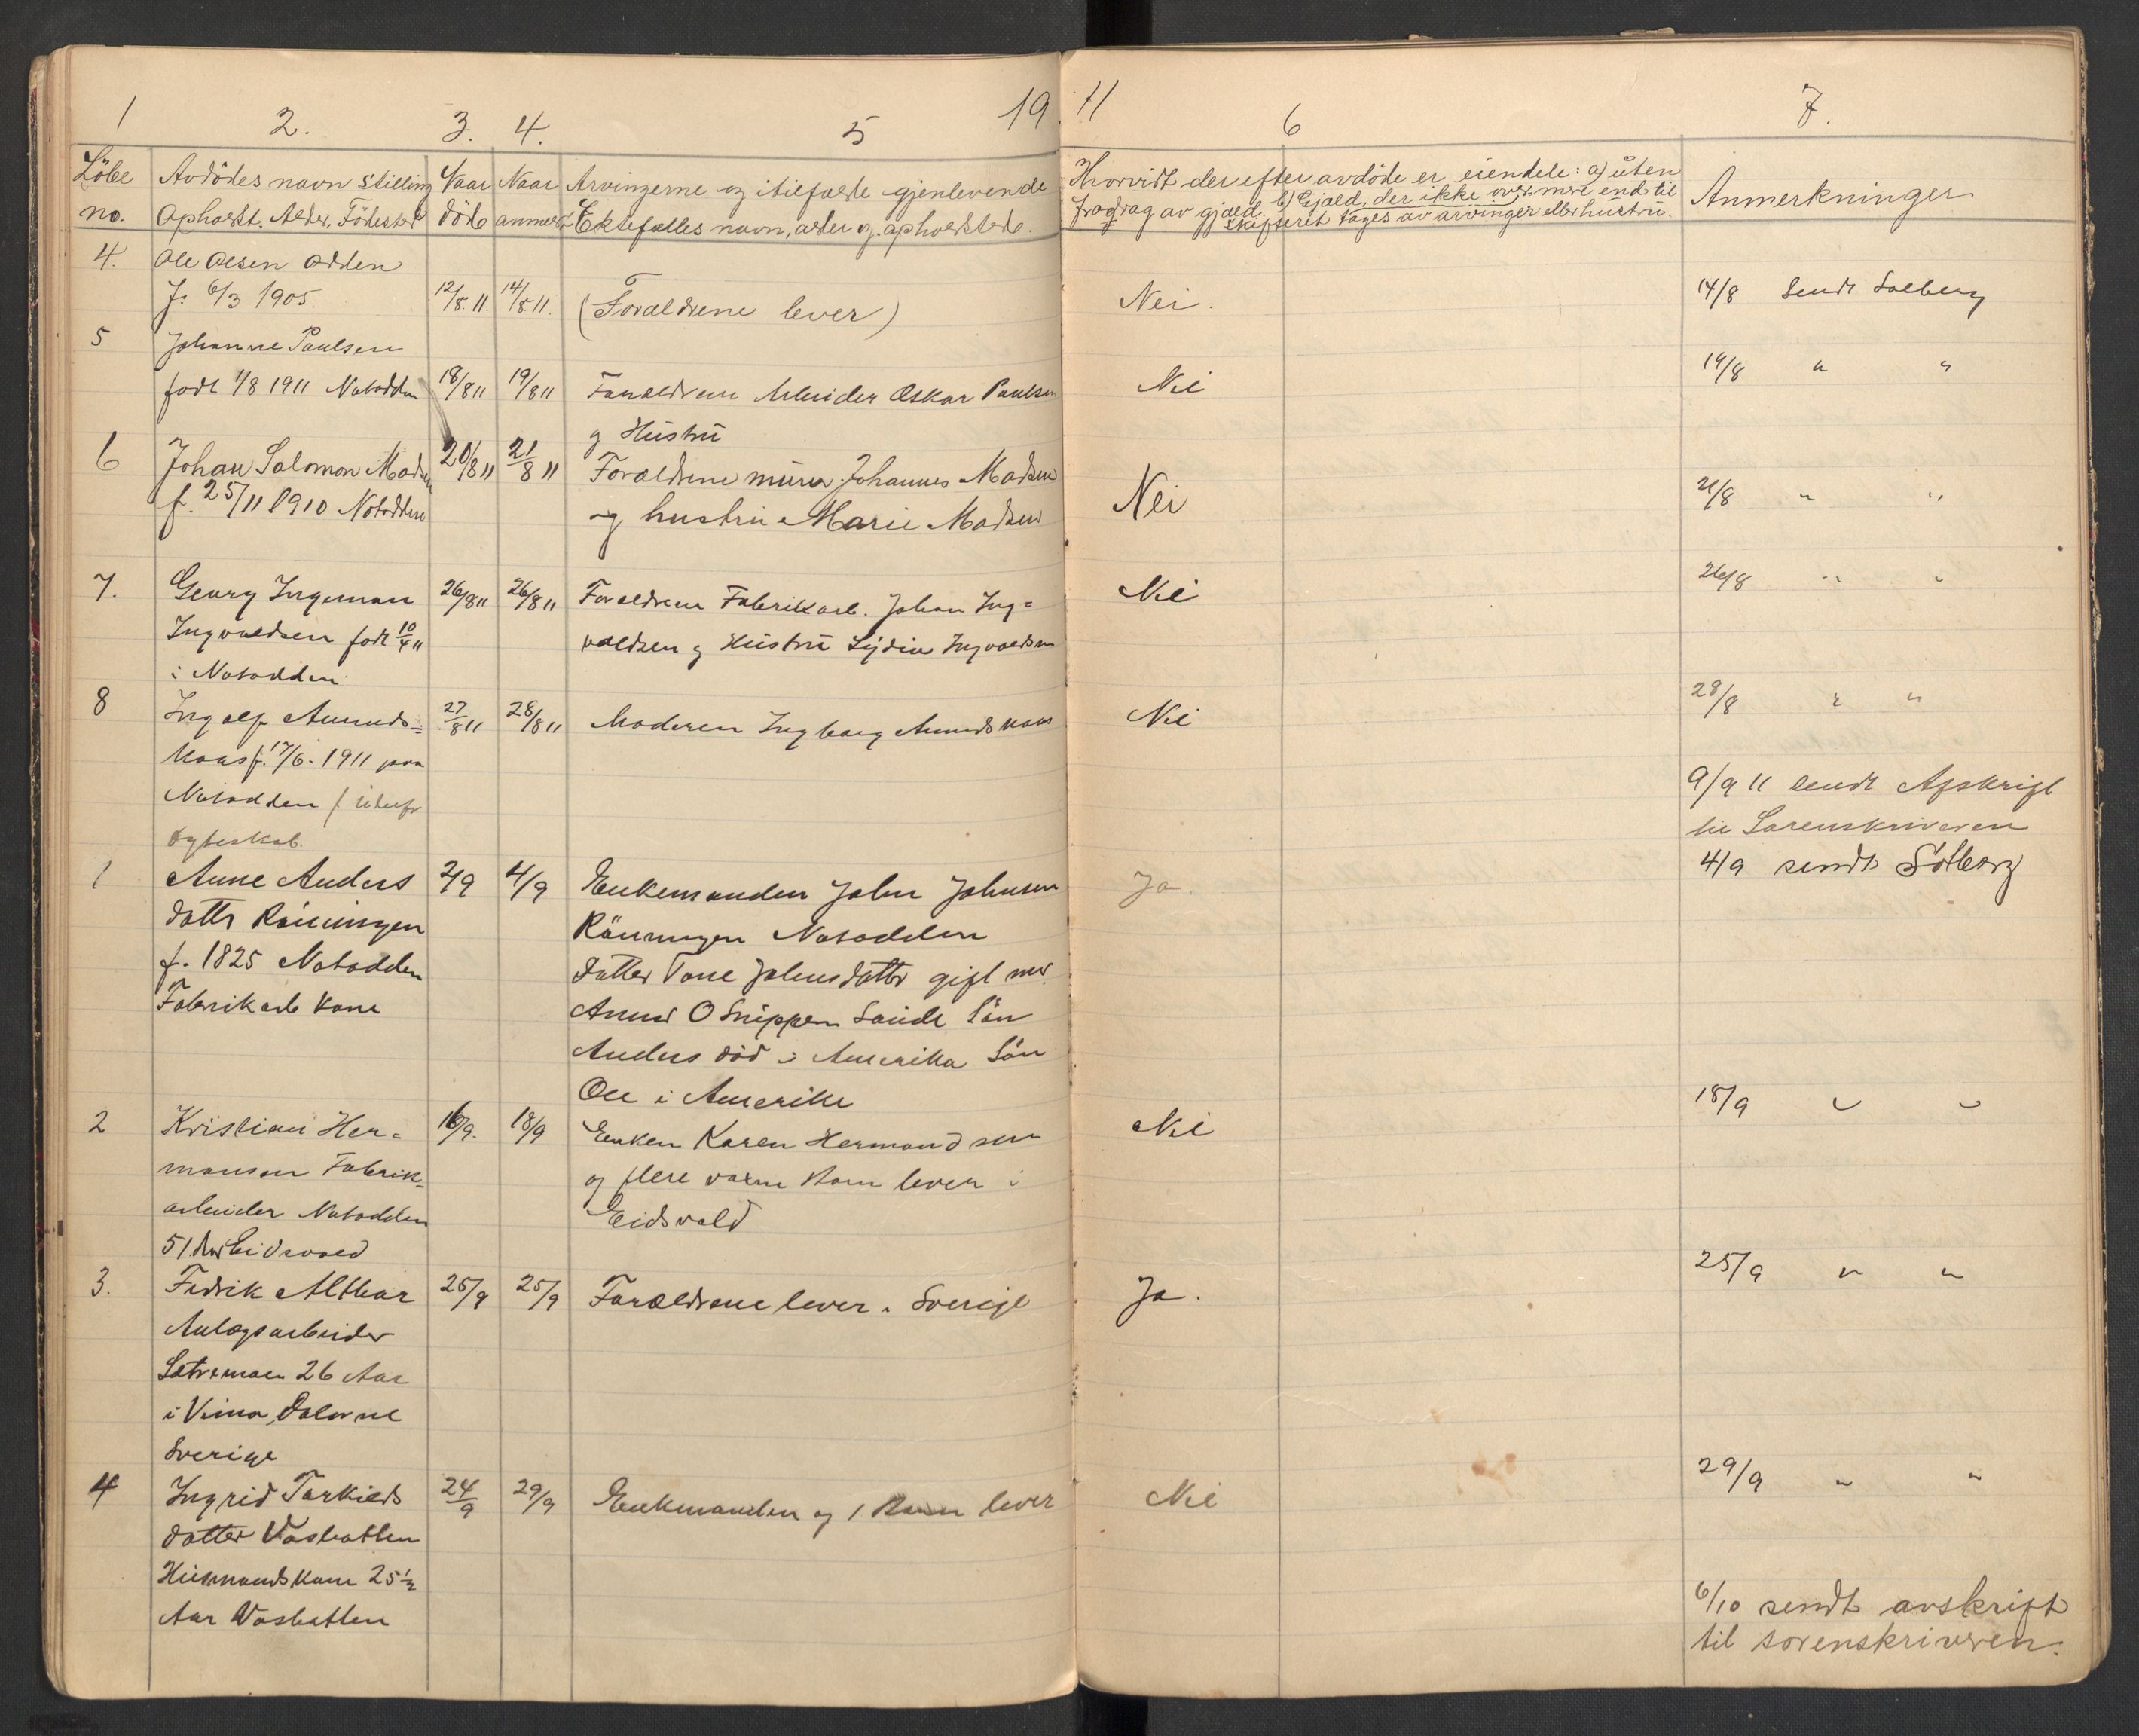 1 2. 3. 4. 5 19 11 6 7.
Löbe Avdödes navn stilling Naar Naar Arvingerne og i tilfælde gjenlevende Hvorvidt der efter avdöde er eiendele: a) uten Anmerkninger
no. Opholdst. Alder, Födested död anmeldt Ektefælles navn, alder og opholdsted. fradrag av gjæld. b) Gjæld, der ikke over mere end til
skifteret tages av arvinger eller hustru.
4. Ole Olsen Odden
f. 6/3 1905. 12/8.11. 14/8.11. (Forældrene lever) Nei. 14/8 Sendt Solberg
5 Johanne Paulsen
födt 1/8 1911 Notodden 18/8 11 19/8 11 Forældrene Arbeider Oskar Paulsen Nei 19/8 " "
og Hustru
6 Johan Salomon Madsen 20/8 11 21/8 11 Forældrene murer Johannes Madsen Nei 21/8 " "
f. 25/11 1910 Notodden og hustru Marie Madsen
7. Georg Ingeman 26/8 11 26/8 11 Forældrene Fabrikarb. Johan Ing= Nei 26/8 " "
Ingvaldsen födt 10/4 11 valdsen og Hustru Lydia Ingvaldsen
i Notodden
8 Ingolf Amunds= 27/8 11 28/8 11 Moderen Ingborg Amundskaas Nei 28/8 " "
kaas f. 17/6-1911 paa
Notodden (utenfor 9/9 11 sendt Afskrift
Egteskab. til Sorenskriveren
1 Anne Anders 2/9 4/9 Enkemanden John Johnsen Ja. 4/9 sendt Solberg
datter Rönningen Rönningen Notodden
f. 1825 Notodden Datter Tone Johnsdatter gift med
Fabrikarb kone O Snippen Saude Sön
Anders död i Amerika Sön
Ole i Amerika
2 Kristian Her= 16/9. 18/9 Enken Karen Hermandsen Nei 18/9 " "
mansen Fabrik= og flere voxne Barn lever i
arbeider Notodden Eidsvold
51 Aar Eidsvold
3. Fedrik Althar 25/9 25/9 Forældrene lever i Sverige Ja. 25/9 " "
Anlægsarbeider
Sætremoen 26 Aar
i Vima Dalarne
Sverige
4 Ingrid Torkilds 24/9 29/9 Enkmanden og 1 Barn lever Nei 29/9 " "
datter Vasbotten
Husmandskone 25 1/2
Aar Vasbotten 6/10 sendt avskrift
til sorenskriveren.